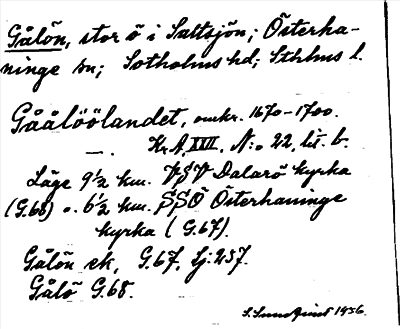 Gålön, stor ö i Saltsjön; Österha-
ninge sn; Sotholms hd; Sthlms l.
Gåålöölandet, omkr. 1670-1700.
—. Kr.A. XVII. N:o 22, lit. b.
Läge 9½ km. VSV Dalarö kyrka
(G.68) o. 6½ km. SSÖ Österhaninge
kyrka (G.67).
Gålön ek, G.67. Lj:257.
Gålö G.68.
S. Sundqvist 1936.